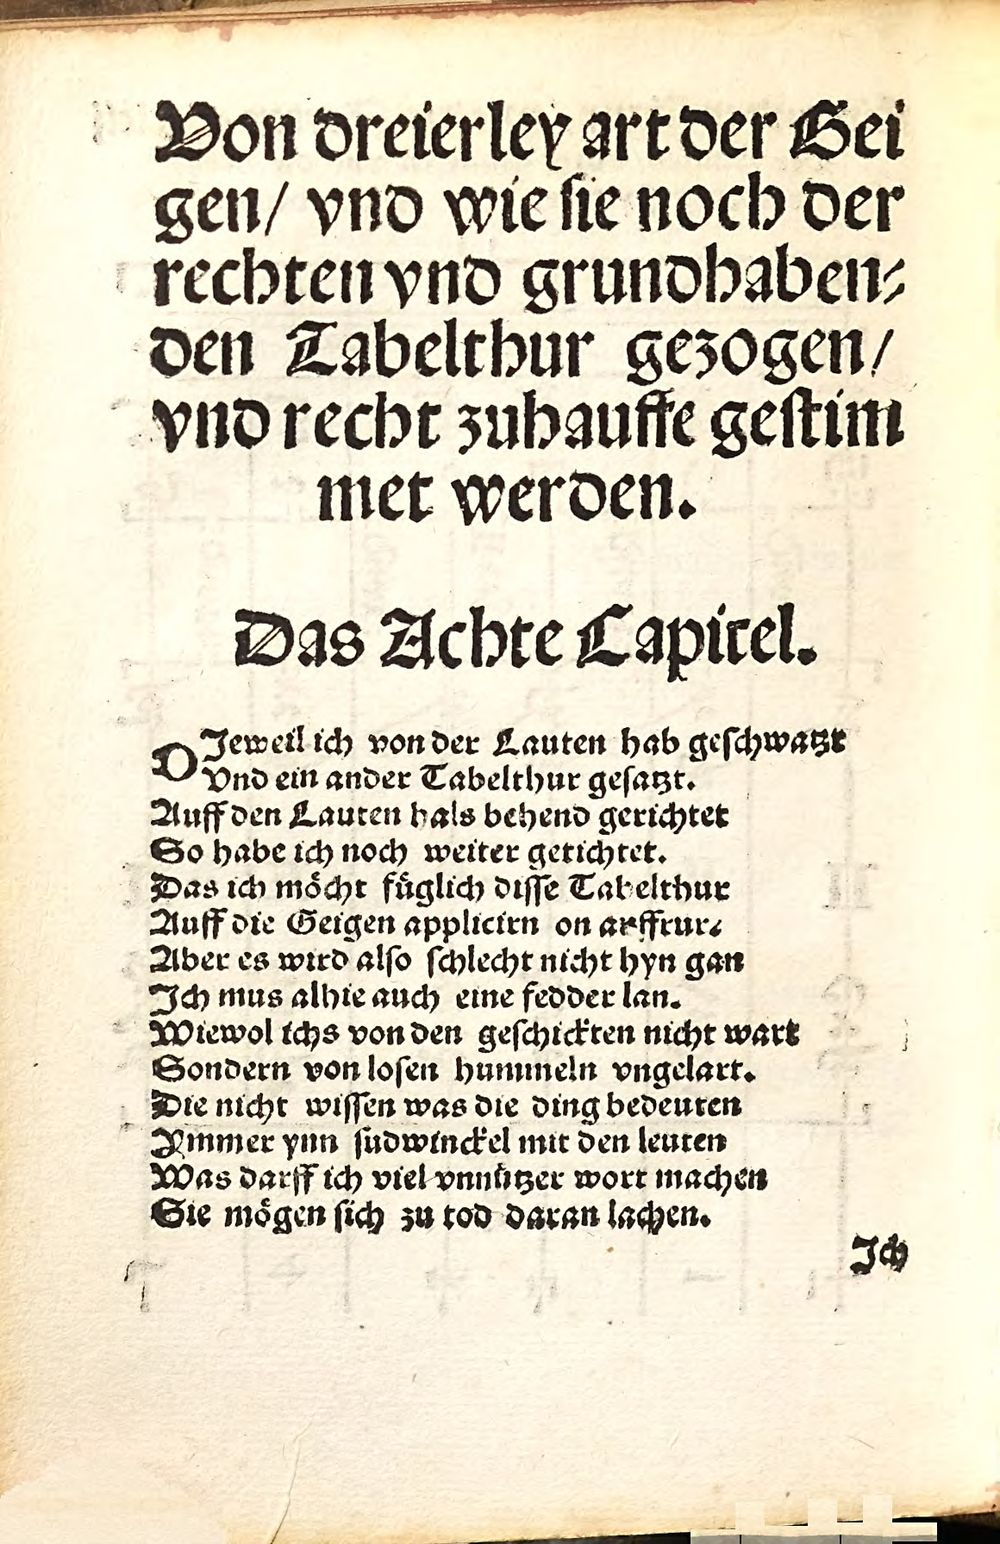 Von dreierley art der Gei
gen/ vnd wie sie noch der
rechten vnd grundhaben⸗
den Tabelthur gezogen/
vnd recht zuhauffe gestim
met werden.
Das Achte Capitel.
DJeweil ich von der Lauten hab geschwatzt
Vnd ein ander Tabelthur gesatzt.
Auff den Lauten hals behend gerichtet
So habe ich noch weiter getichtet.
Das ich möcht füglich disse Tabelthur
Auff die Geigen applicirn on auffrur.
Aber es wird also schlecht nicht hyn gan
Jch mus alhie auch eine fedder lan.
Wiewol ichs von den geschickten nicht wart
Sondern von losen hummeln vngelart.
Die nicht wissen was die ding bedeuten
Ymmer ynn sudwinckel mit den leuten
Was darff ich viel vnnützer wort machen
Sie mögen sich zu tod daran lachen.
Jch